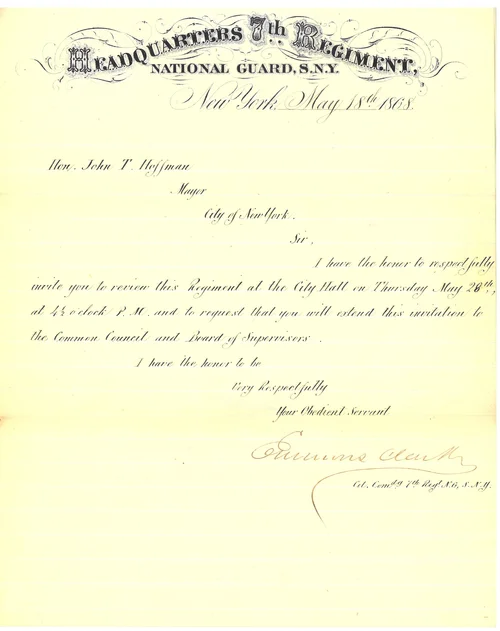 HEADQUARTERS 7th REGIMENT,
NATIONAL GUARD, S.N.Y.
New York May 18th 1868
Hon. John T. Hoffman
Mayor
City of New York.
Sir,
I have the honor to respectfully
invite you to review this Regiment at the City Hall on Thursday May 28th,
at 4½ o'clock P.M. and to request that you will extend this invitation to
the Common Council and Board of Supervisors.
I have the honor to be
Very Respectfully
Your Obedient Servant
Emmons Clark
Col. Comd'g 7th Regt N.G., S.N.Y.